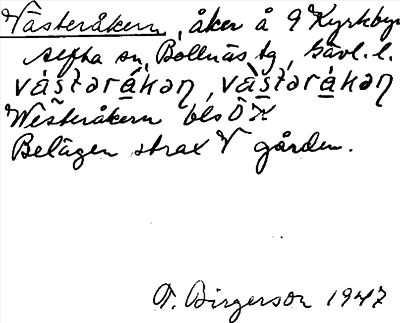 Västeråkern, åker å 9 Kyrkbyn
Alfta sn, Bollnäs tg, Gävl. l.
västərákən, vàštərákən
Westeråkern blsÖX
Belägen strax V gården.
T. Birgerson 1947